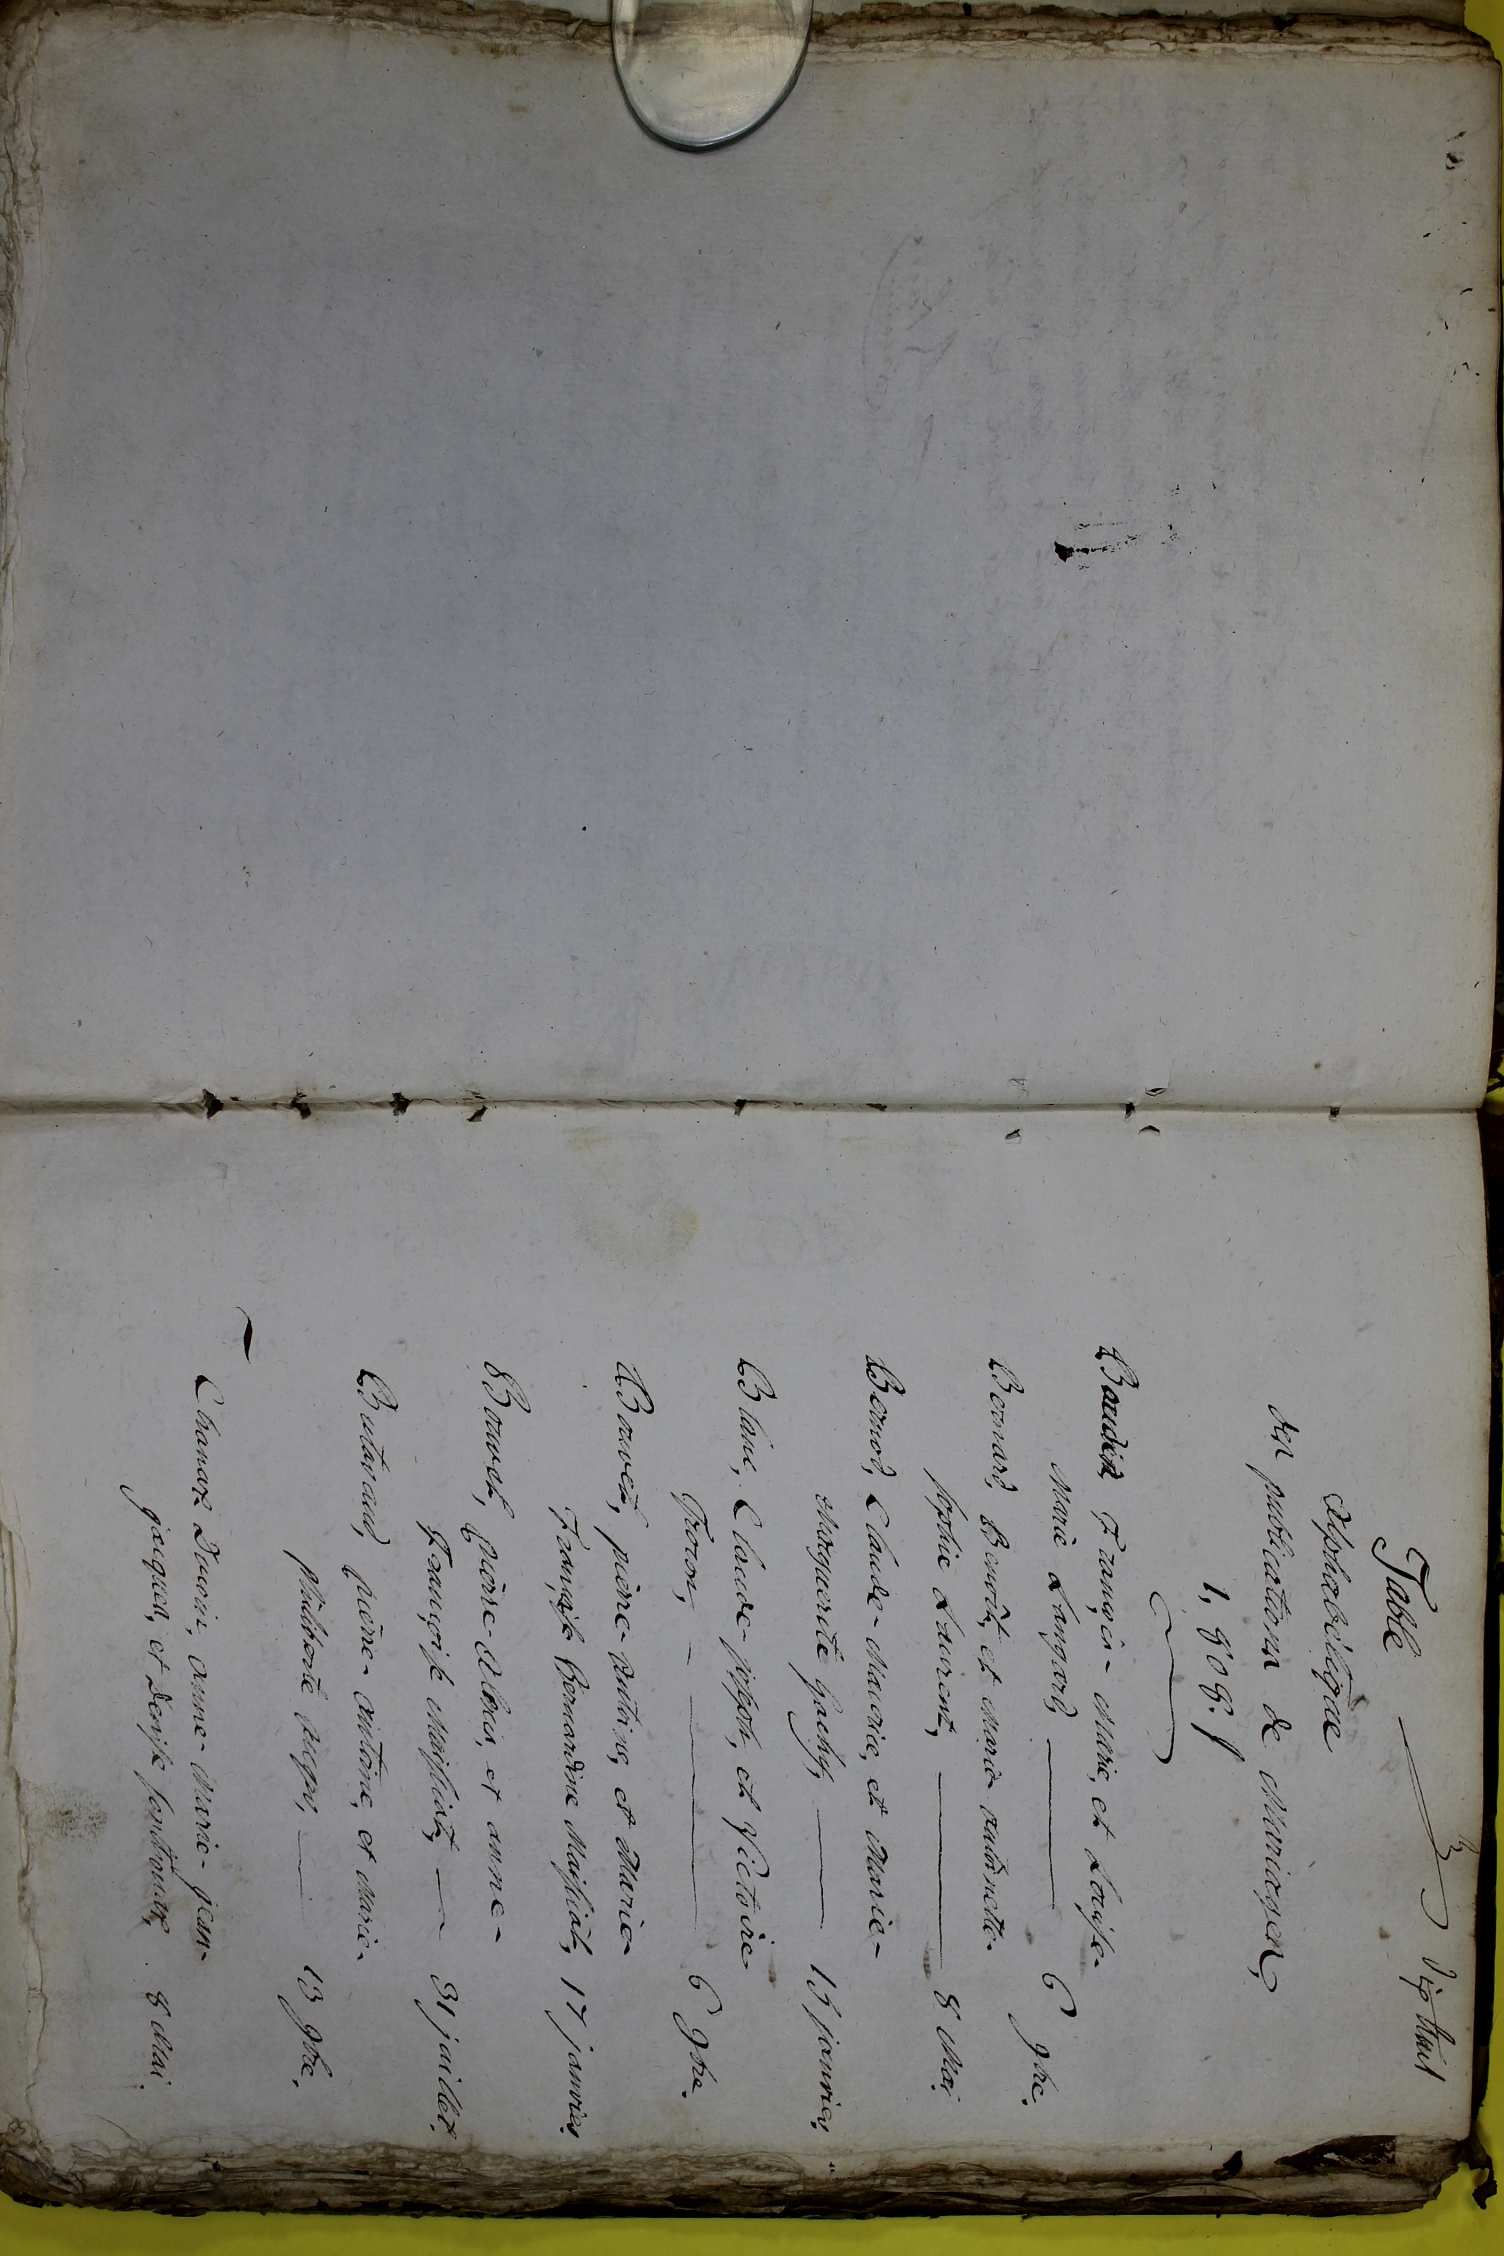 Dix huit
Table
Alphabétique
des publications de Mariages,
1,808.
Baudin François-Marie, et Louise-
Marie Langard, 6 9bre.
Bernard, Benoît, et Marie antoinette-
Sophie Laurent, 8 Mai
Bernod, Claude-Maurice, et Marie-
Marguerite Gachy, 15 janvier,
Blanc, Claude-joseph, et Victoire
6 9bre.
Bouvet, pierre-antoine, et Marie-
Françoise Bernardine Maissiat, 17 janvier.
Bouvet, pierre-Alexis, et anne-
Françoise Maissiat, 31 juillet.
Butavand, pierre-antoine, et Marie-
philiberte 13 9bre.
Chanax anne-Marie-jean-
jacques, et Denise 8 Mai.